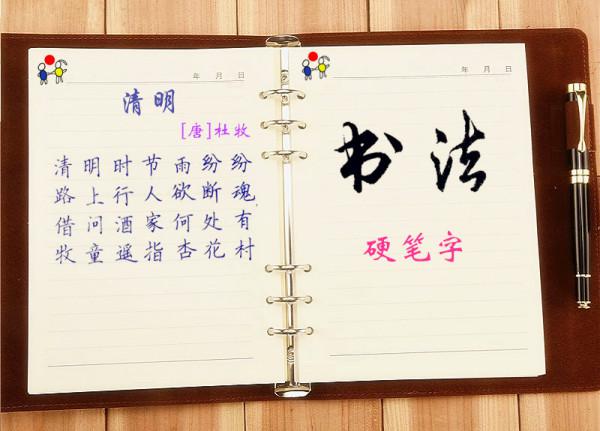 年 月 日
清明
[唐]杜牧
清明时节雨纷纷
路上行人欲断魂
借问酒家何处有
牧童遥指杏花村
年 月 日
书法
硬笔字